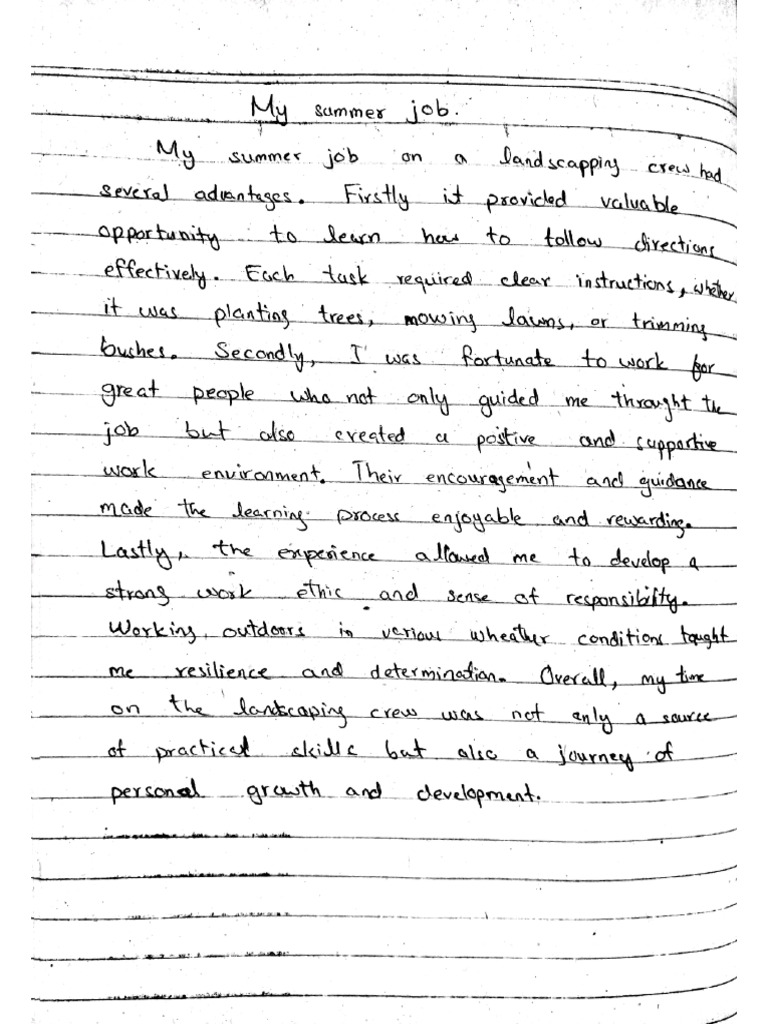 My summer job.
My summer job on a landscapping crew had
several advantages. Firstly it provided valuable
opportunity to learn how to follow directions
effectively. Each task required clear instructions, whether
it was planting trees, mowing lawns, or trimming
bushes. Secondly, I was fortunate to work for
great people who not only guided me throught the
job but also created a postive and supportive
work environment. Their encouragement and guidance
made the learning process enjoyable and rewarding.
Lastly, the experience allowed me to develop a
strong work ethic and sense of responsibility.
Working outdoors in various wheather conditions taught
me resilience and determination. Overall, my time
on the landscaping crew was not only a source
of practical skills but also a journey of
personal growth and development.